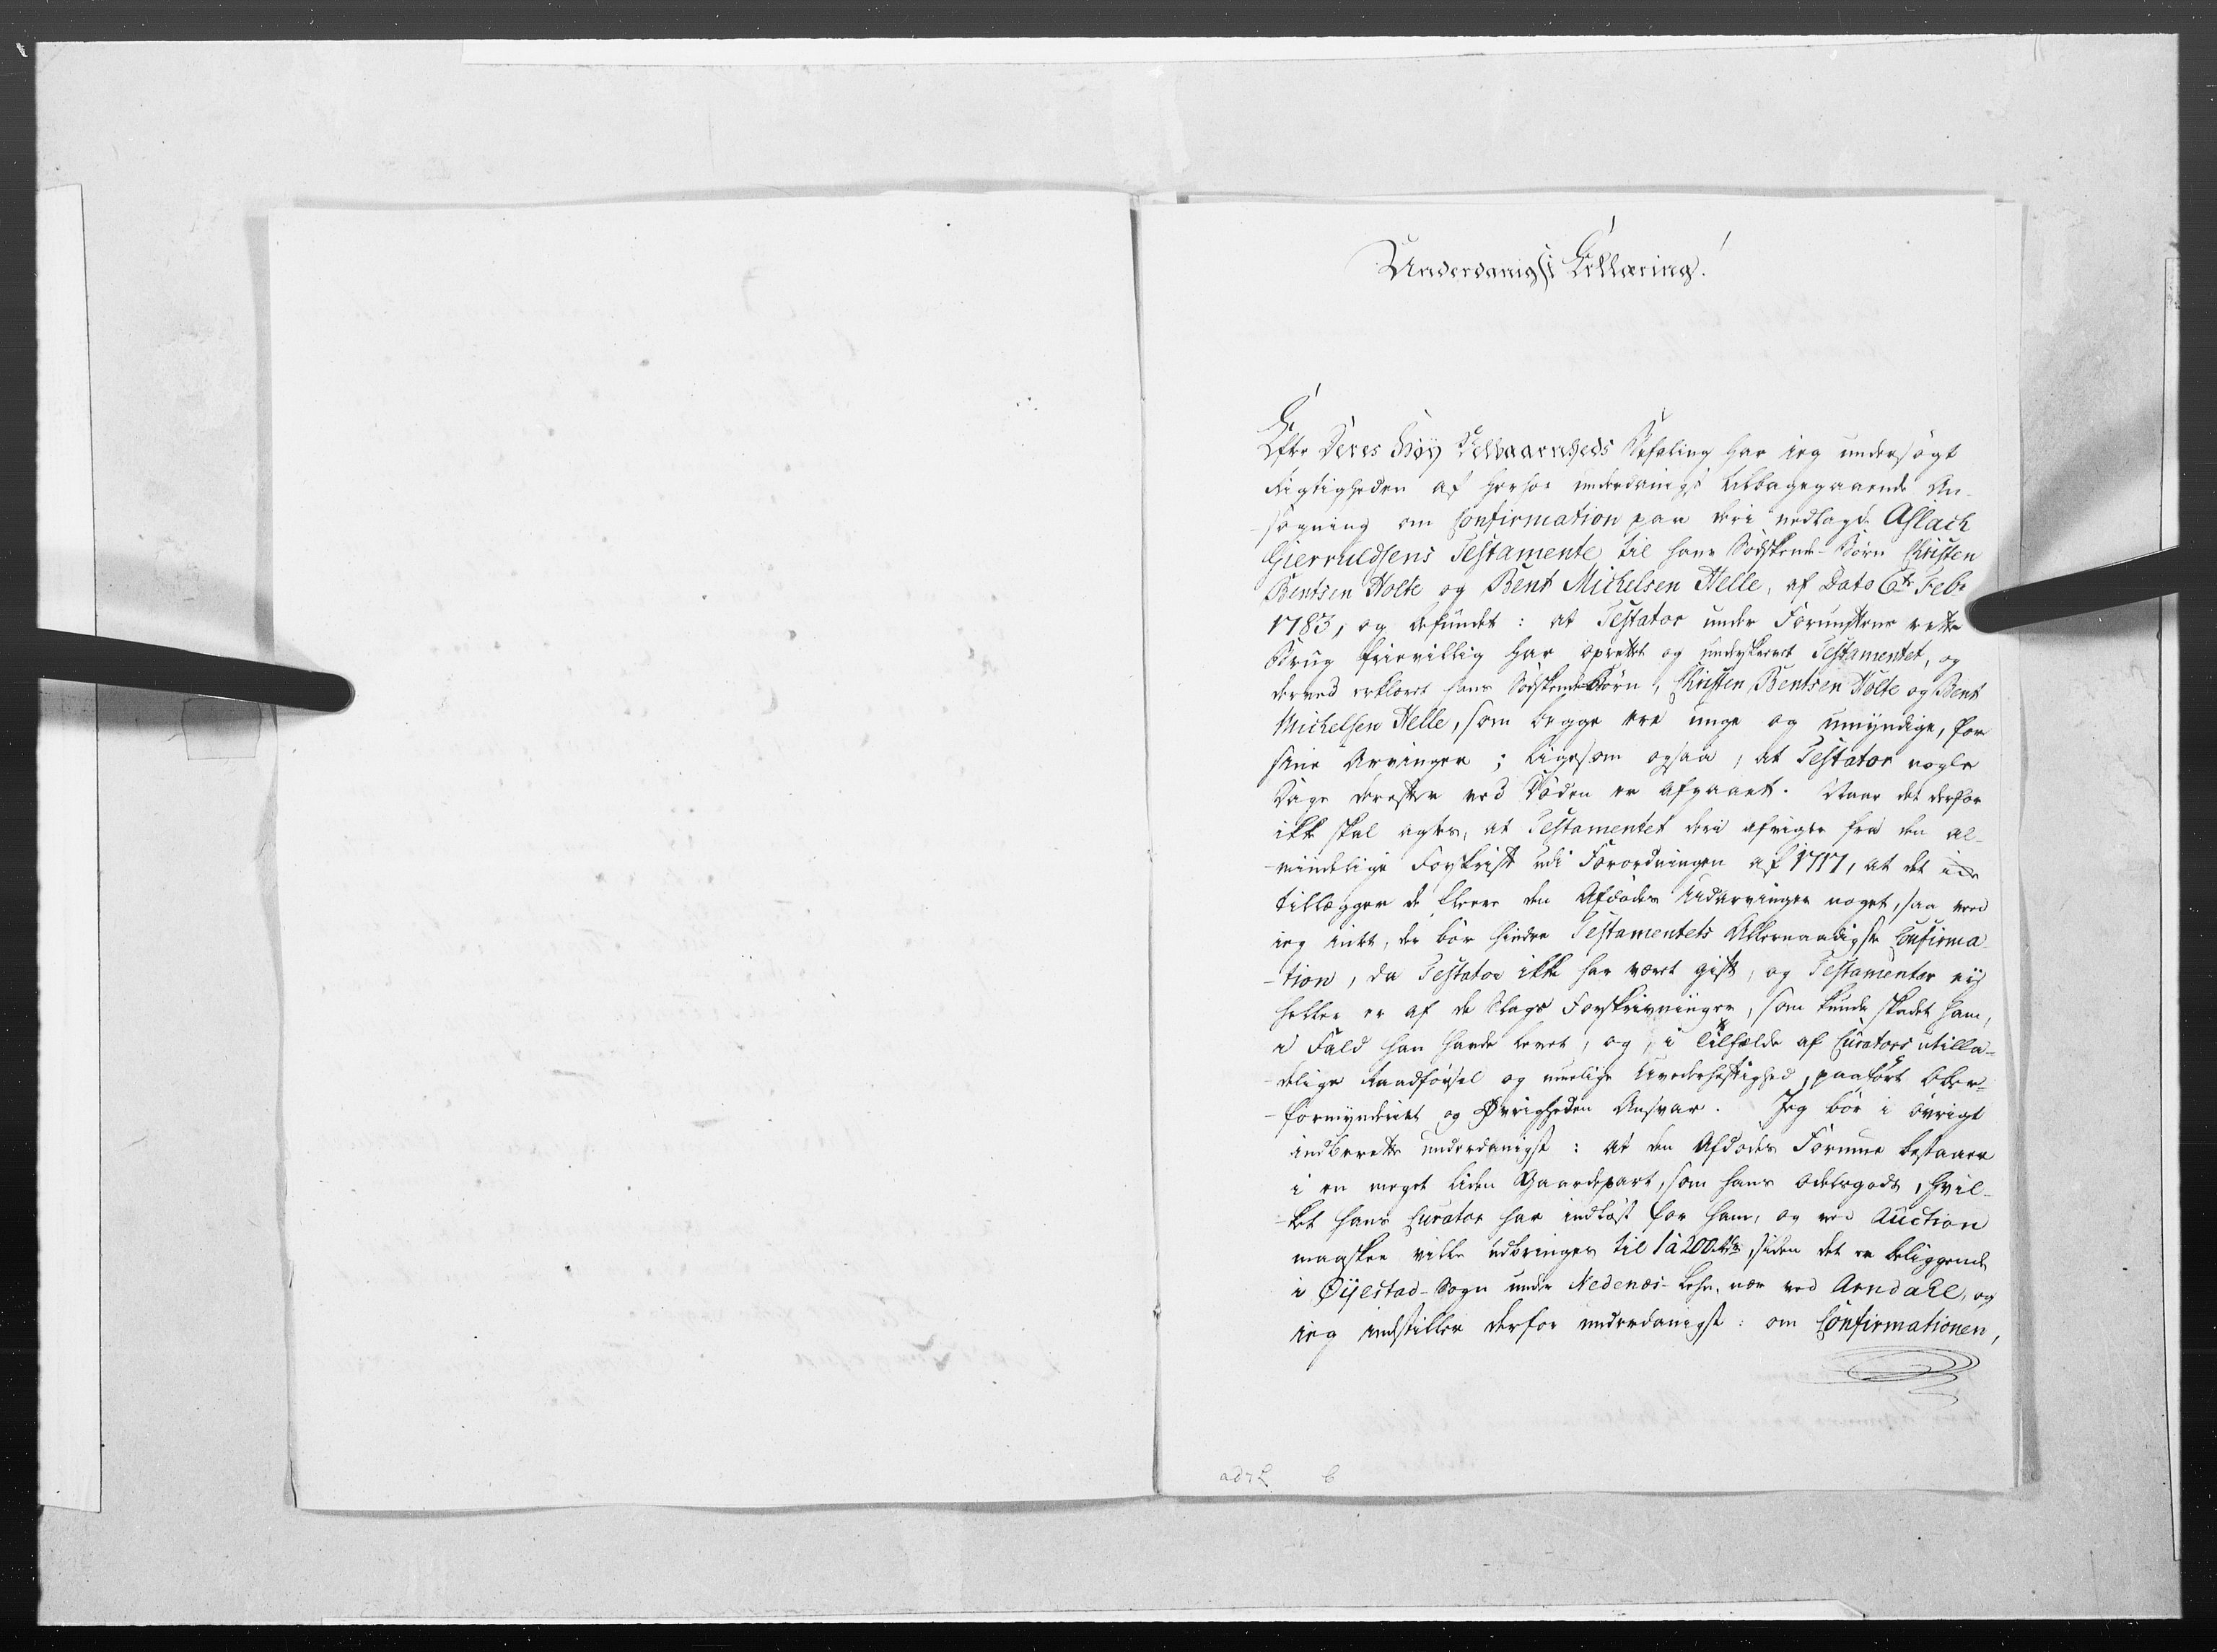 Underdanigst Erklæring!
Efter Deres Høy Velbaarenheds Befaling har jeg undersøgt
Rigtigheden af herhos underdanigst tilbagegaaende An-
søgning om Confirmation paa deri nedlagde Aslach
Gierruldsens Testamente til hans Södskende-Börn Christen
Bentsen Holte og Bent Michelsen Helle, af Dato 6te Febr
1783, og befundet: at Testator under Fornuftens rette
Brug frievillig har oprettet og underskrevet Testamentet, og
derved erklæret hans Södskende Börn, Christen Bentsen Holte og Bent
Michelsen Helle, som begge ere unge og umyndige, for
sine Arvinger; ligesom ogsaa, at Testator nogle
Dage derefter ved Döden er afgaaet. Naar det derfor
ikke skal agtes, at Testamentet deri afviger fra den al-
-mindelige Forskrift udi Forordningen af 1717, at det
tillægger de fleere den Afdödes Udarvinger noget, saa veed
jeg intet, der bör hindre Testamentets Allernaadigste Confirma-
-tion, da Testator ikke har været gift, og Testamentet eij
heller er af de Slags Forskrivninger, som kunde skadet ham,
i Fald han havde levet, og, i Tilfælde af Curators utilla-
-delige Raadförsel og muelige Uvederheftighed, paafört Over-
-formynderiet og Øvrigheden Ansvar. Jeg bör i övrigt
indberette underdanigst: at den Afdödes Formue bestaaer
i en meget liden Gaardepart, som hans Odelsgods, hvil-
-ket hans Curator har indlöst for ham, og ved Auction
maaskee ville udbringes til 1 à 200 rdlr, siden det er beliggende
i Øijestad-Sogn under Nedenæs-Lehn, nær ved Arndahl, og
jeg indstiller derfor underdanigst: om Confirmationen,
b